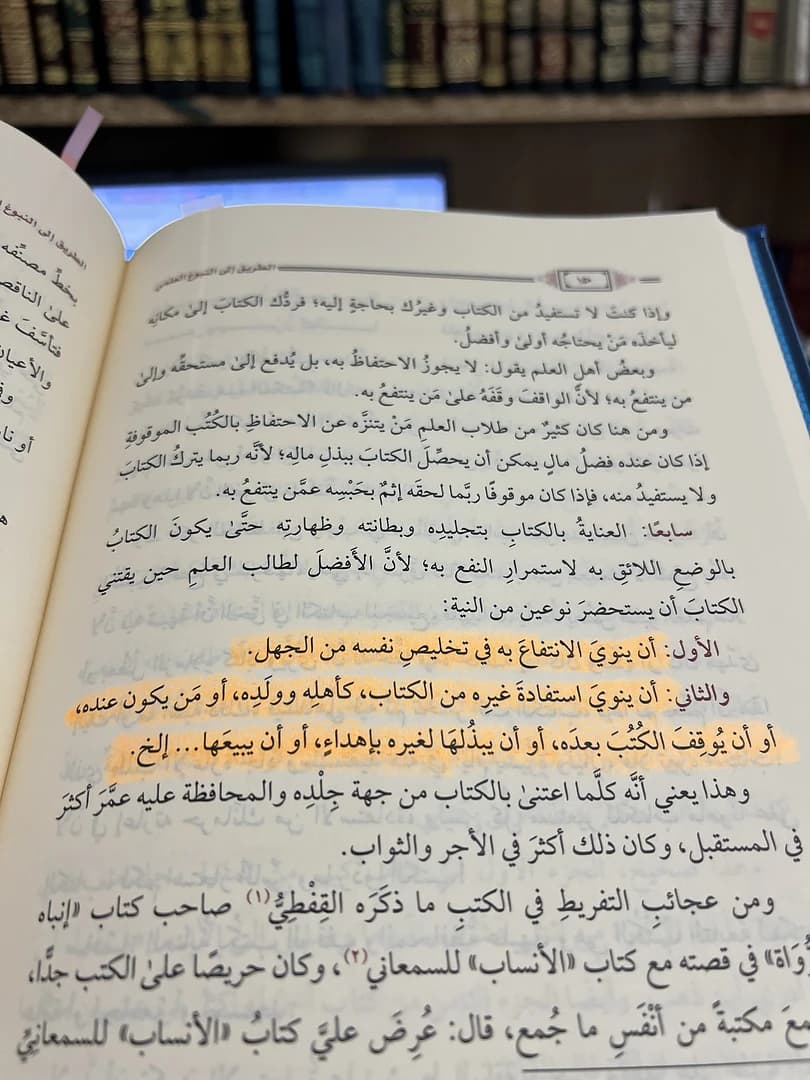 الطريق إلى النبوغ العلمي
وإذا كنتَ لا تستفيدُ من الكتاب وغيرُك بحاجةٍ إليه؛ فردُّك الكتابَ إلىٰ مكانِه
ليأخذَه مَنْ يحتاجُه أولىٰ وأفضلُ.
وبعضُ أهلِ العلم يقول: لا يجوزُ الاحتفاظُ به، بل يُدفع إلىٰ مستحقِّه وإلىٰ
من ينتفعُ به؛ لأنَّ الواقفَ وقَفَهُ علىٰ مَن ينتفعُ به.
ومن هنا كان كثيرٌ من طلاب العلمِ مَنْ يتنزَّه عن الاحتفاظِ بالكُتُب الموقوفةِ
إذا كان عنده فضلُ مالٍ يمكن أن يحصِّلَ الكتابَ ببذلِ مالِه؛ لأنَّه ربما يتركُ الكتابَ
ولا يستفيدُ منه، فإذا كان موقوفًا ربَّما لحقَه إثمٌ بحَبْسِه عمَّن ينتفعُ به.
سابعًا: العنايةُ بالكتابِ بتجليدِه وبطانته وظهارتِه حتَّىٰ يكونَ الكتابُ
بالوضعِ اللائقِ به لاستمرارِ النفع به؛ لأنَّ الأَفضلَ لطالب العلمِ حين يقتني
الكتابَ أن يستحضرَ نوعين من النية:
الأول: أن ينويَ الانتفاعَ به في تخليصِ نفسه من الجهل.
والثاني: أن ينويَ استفادةَ غيرِه من الكتاب، كأهلِه وولَدِه، أو مَن يكون عنده،
أو أن يُوقِفَ الكُتُبَ بعدَه، أو أن يبذُلَهَا لغيره بإهداءٍ، أو أن يبيعَها... إلخ.
وهذا يعني أنَّه كلَّما اعتنىٰ بالكتاب من جهة جِلْدِه والمحافظة عليه عمَّرَ أكثرَ
في المستقبل، وكان ذلك أكثرَ في الأجر والثواب.
ومن عجائبِ التفريطِ في الكتبِ ما ذكَرَه القِفْطِيُّ(١) صاحب كتاب «إنباه
في قصته مع كتاب «الأنساب» للسمعاني(٢)، وكان حريصًا علىٰ الكتب جدًّا،
مكتبةً من أنْفَسِ ما جُمع، قال: عُرِضَ عليَّ كتابُ «الأنساب» للسمعانيِّ
الطريق إلى النبوغ
بخطِّ مصنِّفه
علىٰ الناقص
فتأسَّفَ
والأعيان